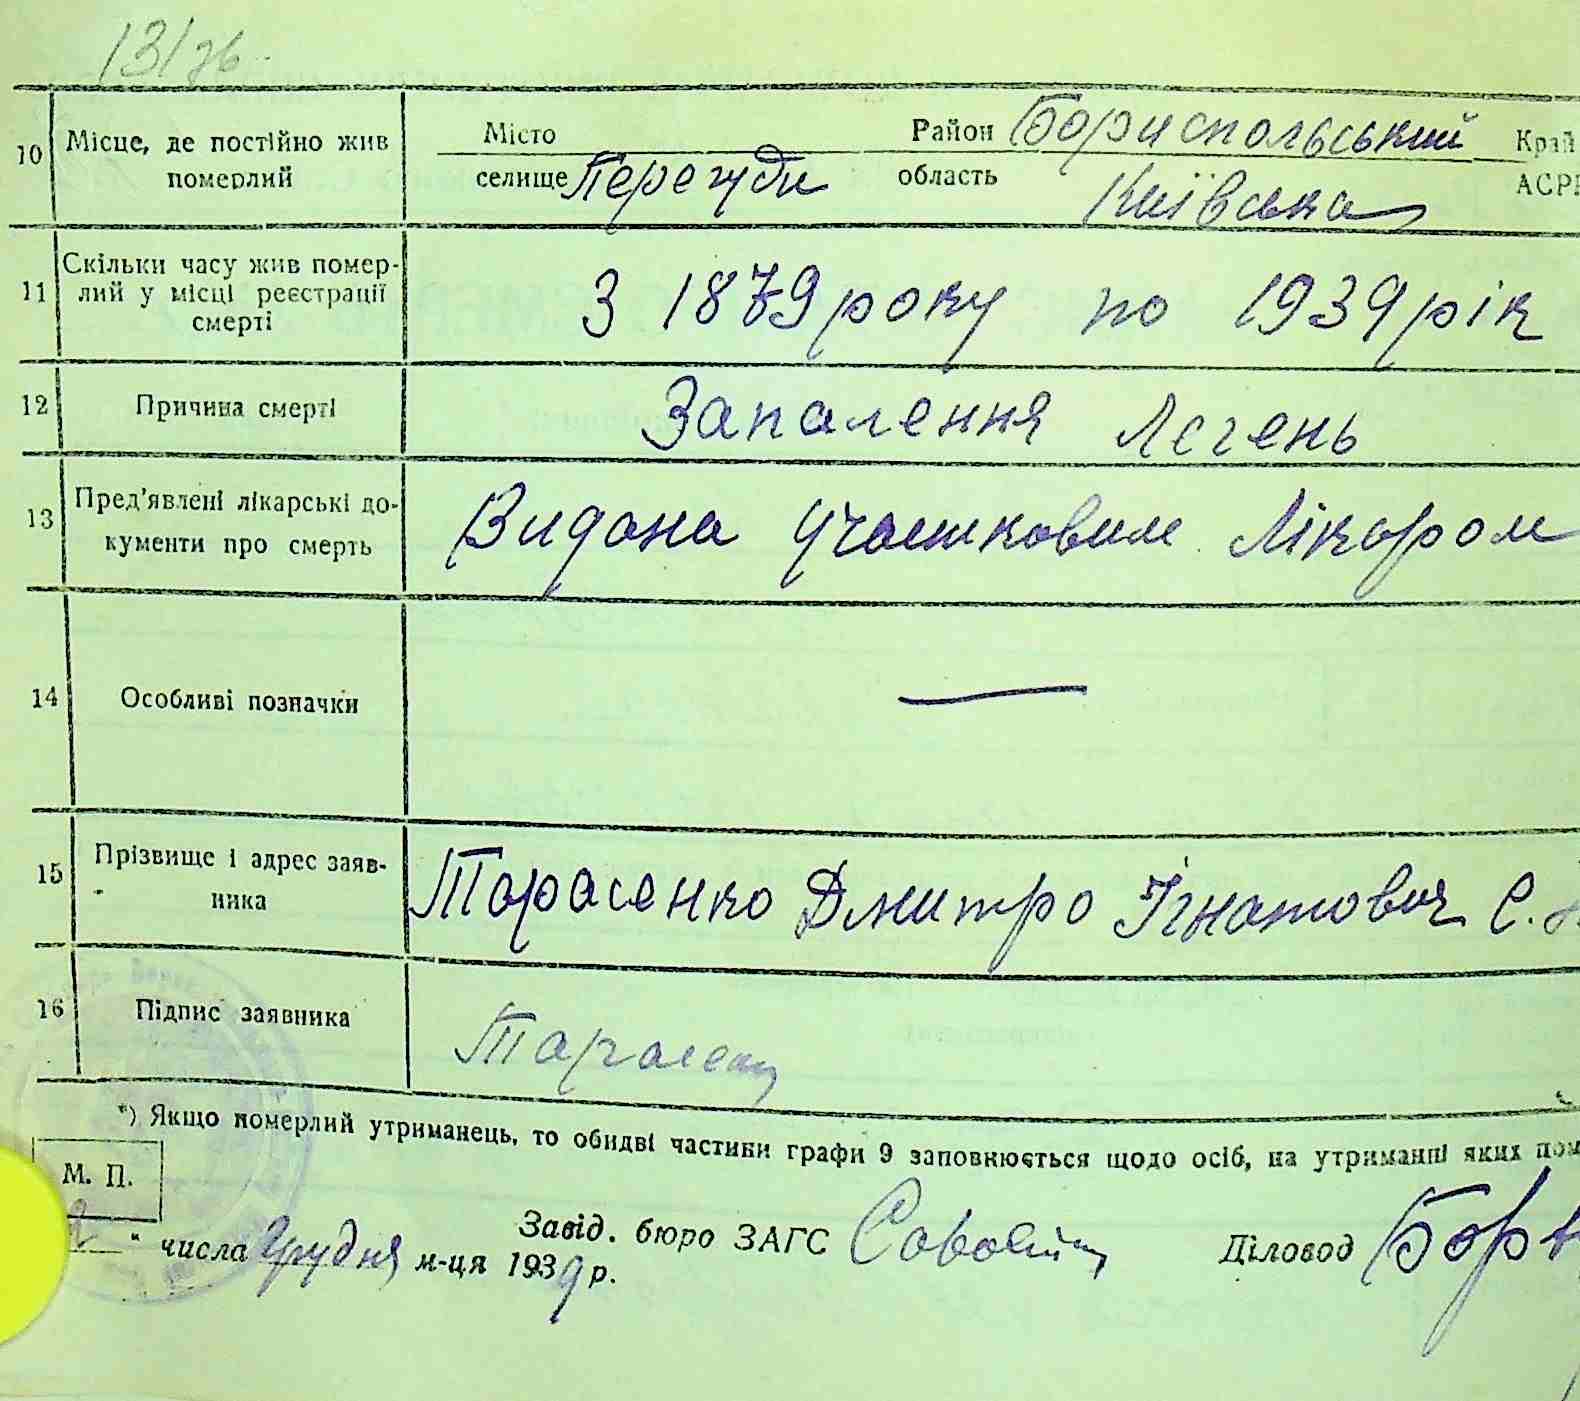 10 Місце, де постійно жив померлий
Місто
селище Перегуди
Район Бориспольський
область Київська
Край
АСР
11 Скільки часу жив помер-
лий у місці реєстрації
смерті
З 1879 року по 1939 рік
12 Причина смерті
Запалення Легень
13 Пред'явлені лікарські до-
кументи про смерть
Видана участковим Лікаром
14 Особливі позначки
—
15 Прізвище і адрес заяв-
ника
Тарасенко Дмитро Ігнатович с.
16 Підпис заявника
*) Якщо померлий утриманець, то обидві частини графи 9 заповнюється щодо осіб, на утриманні яких пом
М. П.
" числа Грудня м-ця 1939 р.
Завід. бюро ЗАГС
Діловод